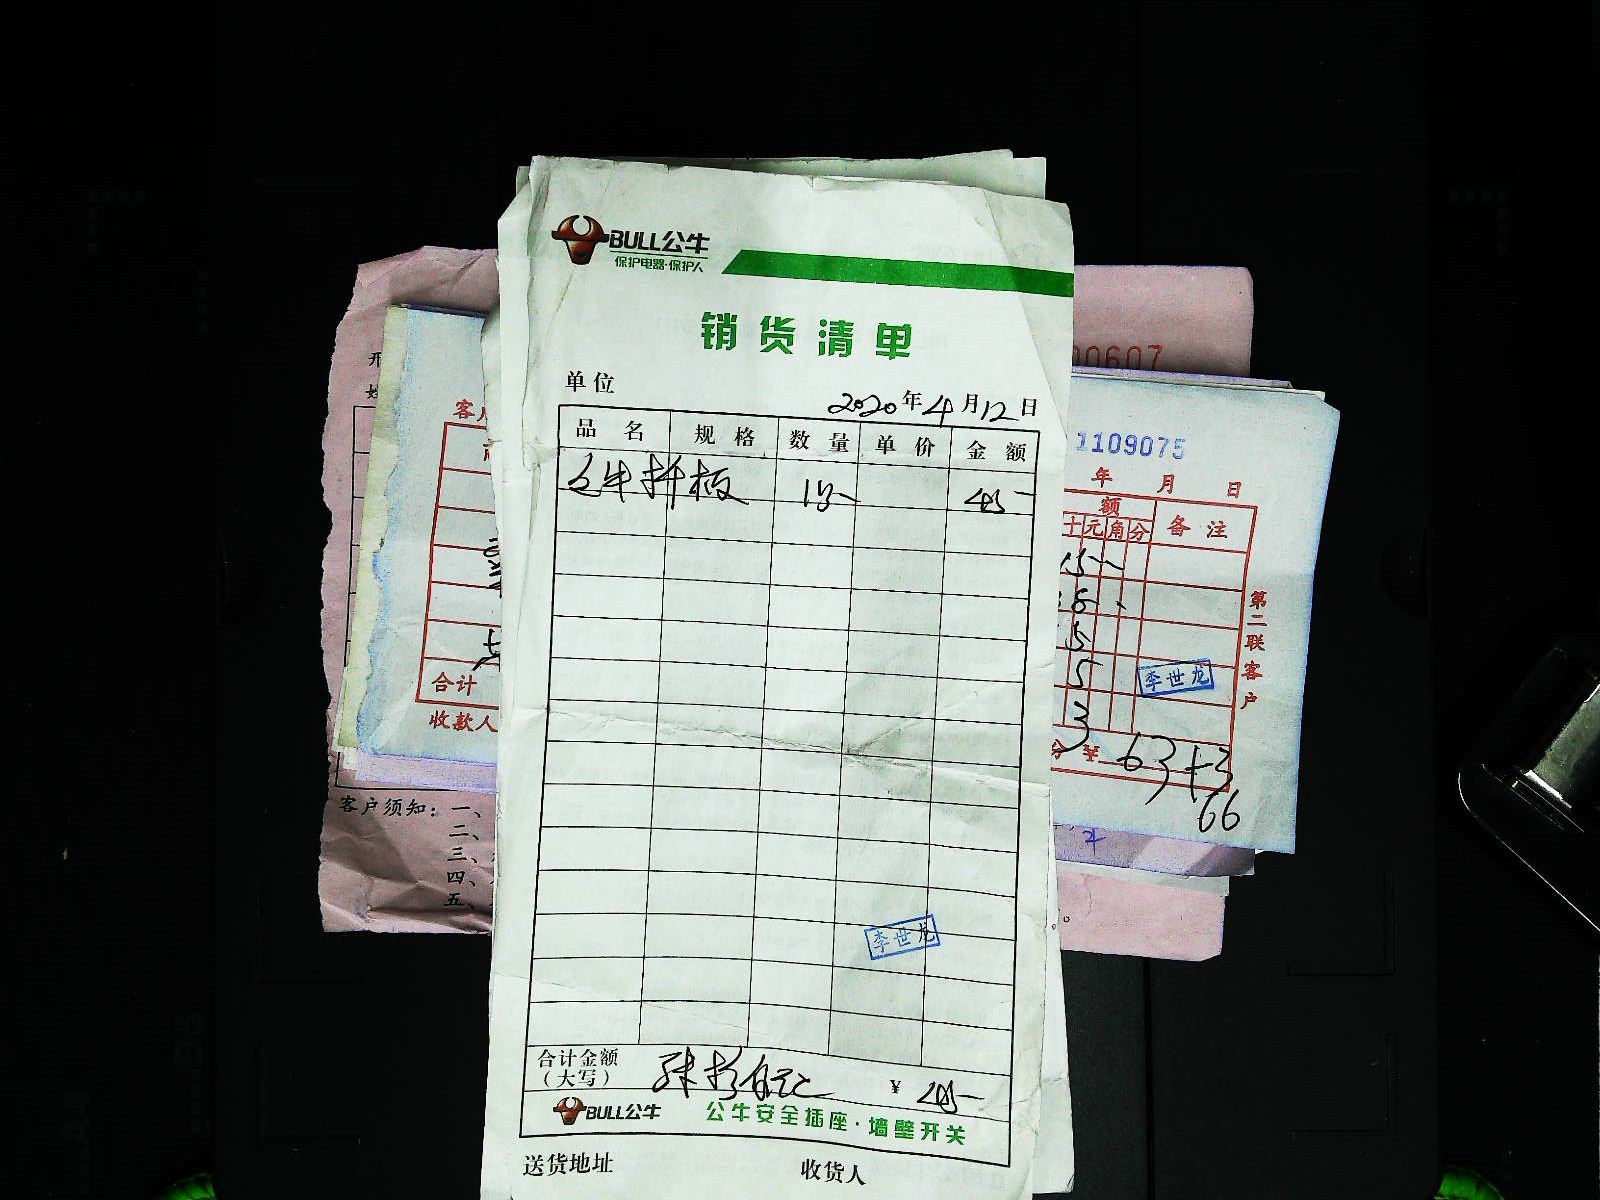 BULL公牛
保护电器·保护人
销货清单
单位
2020年4月12日
品名 规格 数量 单价 金额
公牛插板 45-
李世龙
合计金额
(大写) ¥ 45-
BULL公牛 公牛安全插座·墙壁开关
送货地址 收货人
00607
1109075
年 月 日
额 备注
十元角分
15-
8
5
5
李世龙
3
分 ¥ 63+3
66
第二联客户
合计
收款人
客户须知：一、
二、
三、
四、
五、